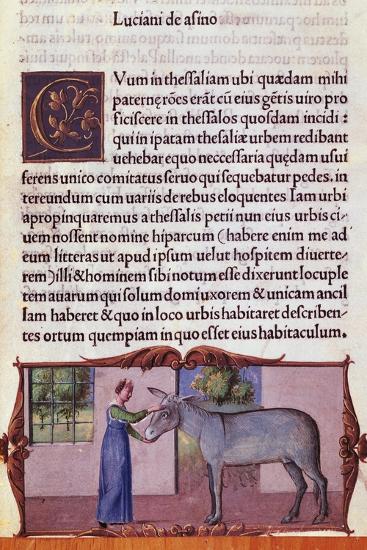 Luciani de asino
CVum in thessaliam ubi quædam mihi
paternę rões erãt cũ eius gẽtis uiro pro
ficiscere in thessalos quosdam incidi :
qui in ipatam thesaliæ urbem redibant
uehebar, equo neccessaria quędam usui
ferens unico comitatus seruo qui sequebatur pedes. in
tereundum cum uariis de rebus eloquentes Iam urbi
apropinquaremus a thessalis petii nun eius urbis ci-
uem nossent nomine hiparcum (habere enim me ad
eum litteras ut apud ipsum uelut hospitem diuerte-
rem) illi & hominem sibi notum esse dixerunt locuple
tem auarum qui solum domi uxorem & unicam ancil
lam haberet & quo in loco urbis habitaret describen-
tes ortum quempiam in quo esset eius habitaculum.